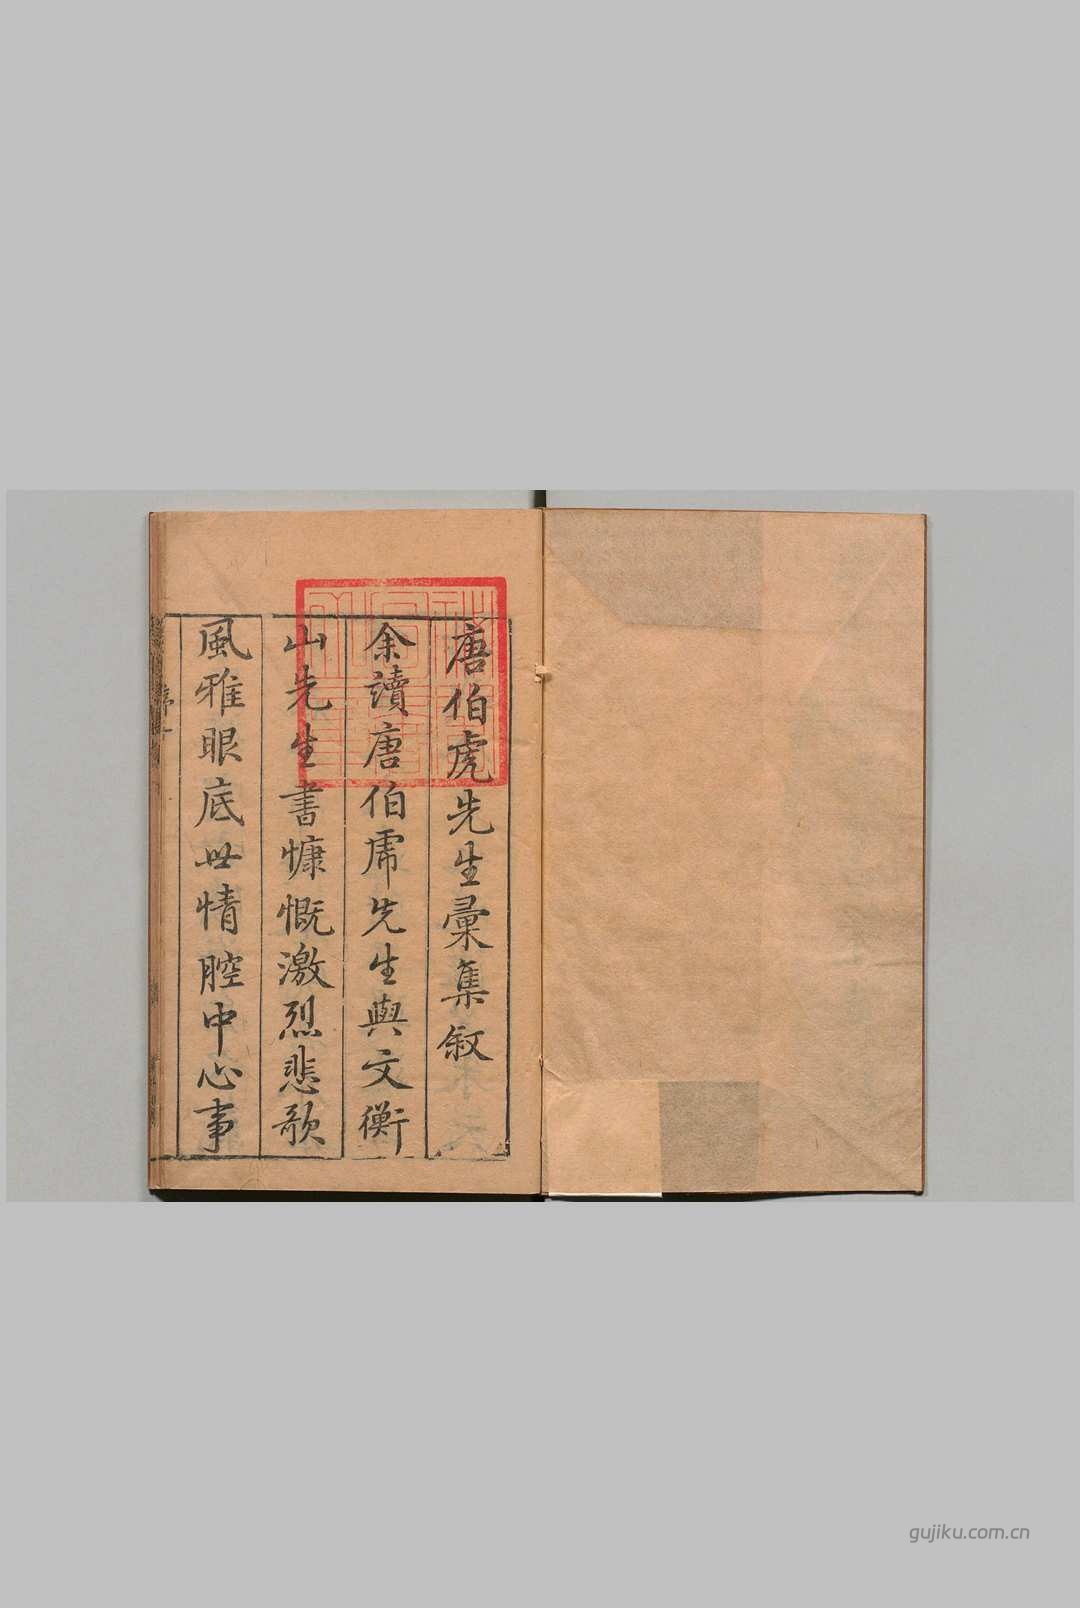 唐伯虎先生彙集叙
余讀唐伯虎先生與文衡
山先生書慷慨激烈悲歌
風雅眼底世情腔中心事
序
gujiku.com.cn